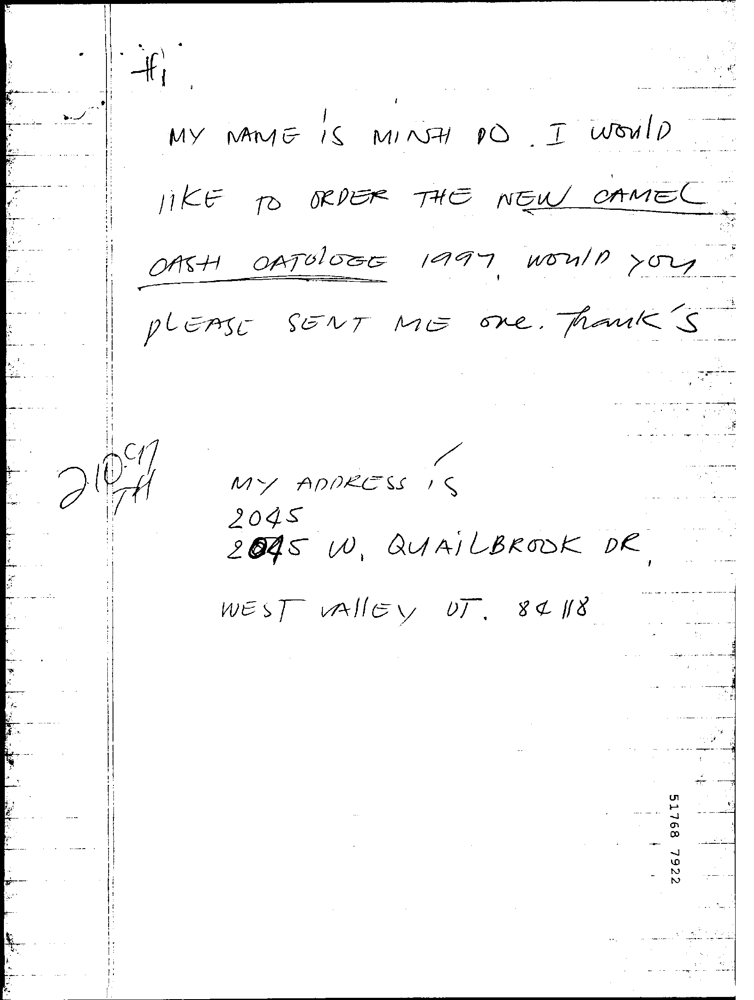 Hi
MY NAME iS MINH DO. I WOUlD
lIKE TO ORDER THE NEW CAMEL
CASH CATOlOGE 1997, WOUlD yOU
pLEASE SENT ME one. Thank'S
MY ADDRESS iS
2045
2045 W, QUAiLBROOK DR,
WEST VAllEY UT. 84118
51768 7922